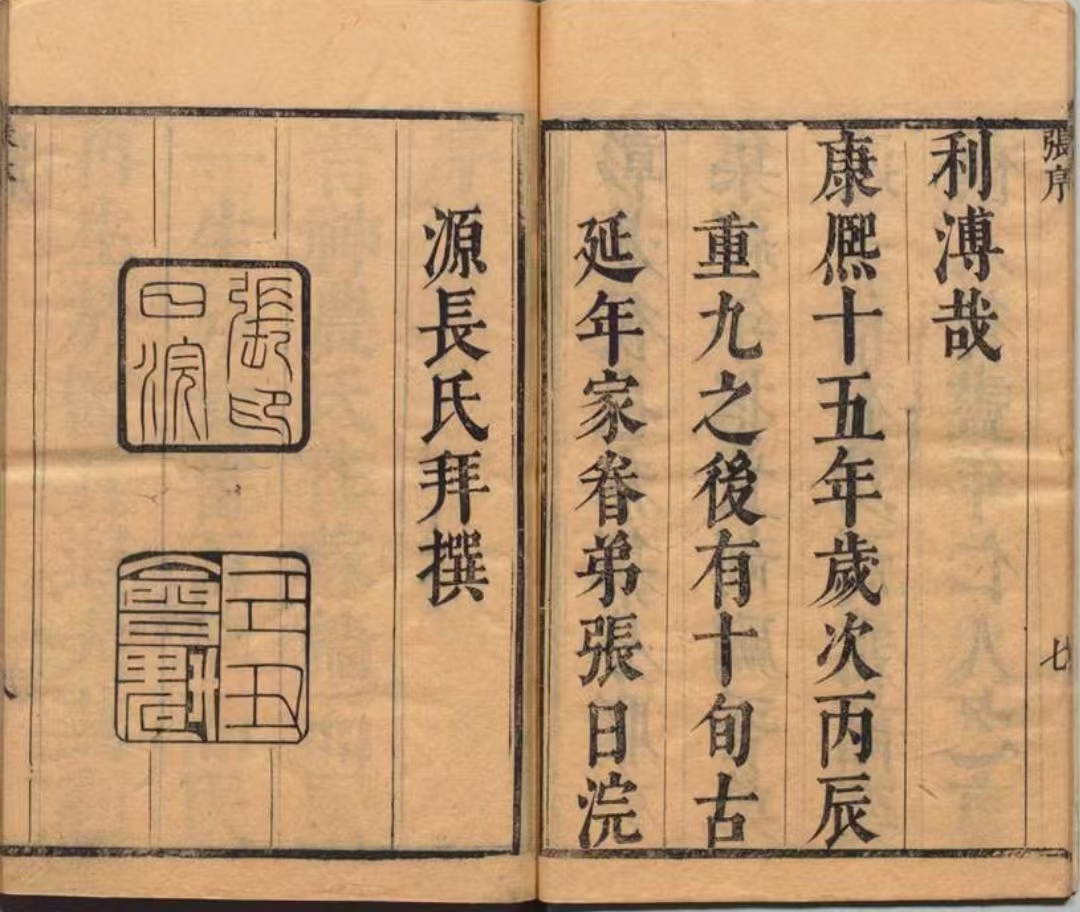 張序
七
利溥哉
康熈十五年歲次丙辰
重九之後有十旬古
延年家眷弟張日浣
源長氏拜撰
張印
日浣
丑
會魁